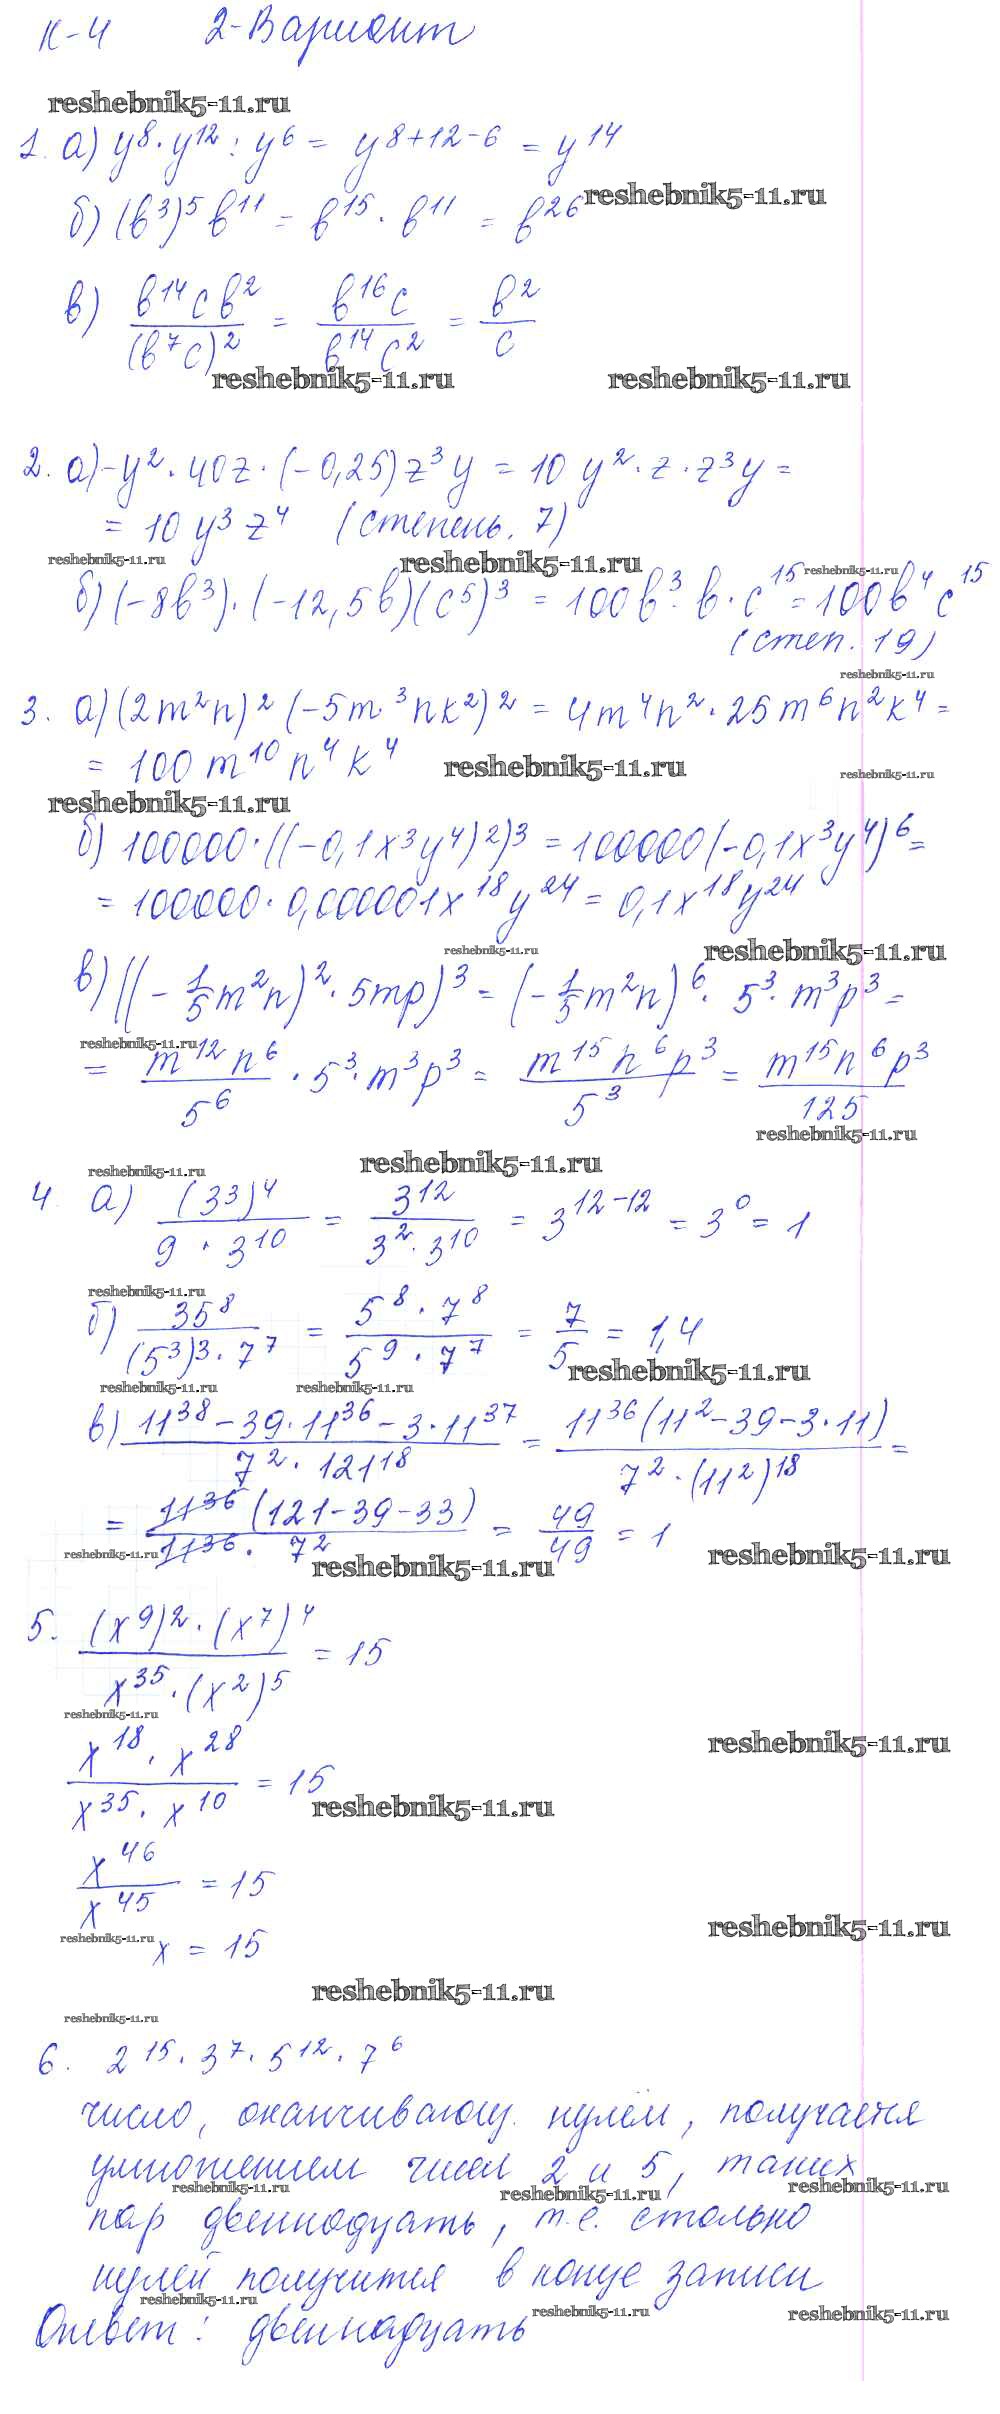 К-4 2-Вариант
reshebnik5-11.ru
1. а) y⁸·y¹² : y⁶ = y⁸⁺¹²⁻⁶ = y¹⁴
reshebnik5-11.ru
б) (b³)⁵ b¹¹ = b¹⁵ · b¹¹ = b²⁶
в) b¹⁴cb²/(b⁷c)² = b¹⁶c/b¹⁴c² = b²/c
reshebnik5-11.ru reshebnik5-11.ru
2. а) -y² · 40z · (-0,25)z³y = 10 y² · z · z³y =
= 10 y³ z⁴ (степень. 7)
reshebnik5-11.ru reshebnik5-11.ru reshebnik5-11.ru
б) (-8b³) · (-12,5b)(c⁵)³ = 100b³ · b · c¹⁵ = 100b⁴c¹⁵
(степ. 19)
reshebnik5-11.ru
3. а) (2m²n)² (-5m³nk²)² = 4m⁴n² · 25m⁶n²k⁴ =
= 100 m¹⁰ n⁴ k⁴
reshebnik5-11.ru reshebnik5-11.ru
reshebnik5-11.ru
б) 100000 · ((-0,1x³y⁴)²)³ = 100000(-0,1x³y⁴)⁶ =
= 100000 · 0,000001x¹⁸y²⁴ = 0,1x¹⁸y²⁴
reshebnik5-11.ru reshebnik5-11.ru
в) ((-1/5m²n)² · 5mp)³ = (-1/5m²n)⁶ · 5³ · m³p³ =
reshebnik5-11.ru
= m¹²n⁶/5⁶ · 5³ · m³p³ = m¹⁵n⁶p³/5³ = m¹⁵n⁶p³/125
reshebnik5-11.ru
reshebnik5-11.ru reshebnik5-11.ru
4. а) (3³)⁴/9 · 3¹⁰ = 3¹²/3² · 3¹⁰ = 3¹²⁻¹² = 3⁰ = 1
reshebnik5-11.ru
б) 35⁸/(5³)³ · 7⁷ = 5⁸ · 7⁸/5⁹ · 7⁷ = 7/5 = 1,4
reshebnik5-11.ru
reshebnik5-11.ru reshebnik5-11.ru
в) 11³⁸ - 39 · 11³⁶ - 3 · 11³⁷/7² · 121¹⁸ = 11³⁶(11² - 39 - 3 · 11)/7² · (11²)¹⁸ =
= 11³⁶(121 - 39 - 33)/11³⁶ · 7² = 49/49 = 1
reshebnik5-11.ru reshebnik5-11.ru reshebnik5-11.ru
5. (x⁹)² · (x⁷)⁴/x³⁵ · (x²)⁵ = 15
reshebnik5-11.ru
x¹⁸ · x²⁸/x³⁵ · x¹⁰ = 15
reshebnik5-11.ru
reshebnik5-11.ru
x⁴⁶/x⁴⁵ = 15
reshebnik5-11.ru
reshebnik5-11.ru
x = 15
reshebnik5-11.ru
reshebnik5-11.ru
6. 2¹⁵ · 3⁷ · 5¹² · 7⁶
число, оканчивающ. нулём, получается
умножением чисел 2 и 5, таких
reshebnik5-11.ru reshebnik5-11.ru reshebnik5-11.ru
пар двеннадцать, т.е. столько
нулей получится в конце записи
reshebnik5-11.ru reshebnik5-11.ru reshebnik5-11.ru
Ответ: двеннадцать